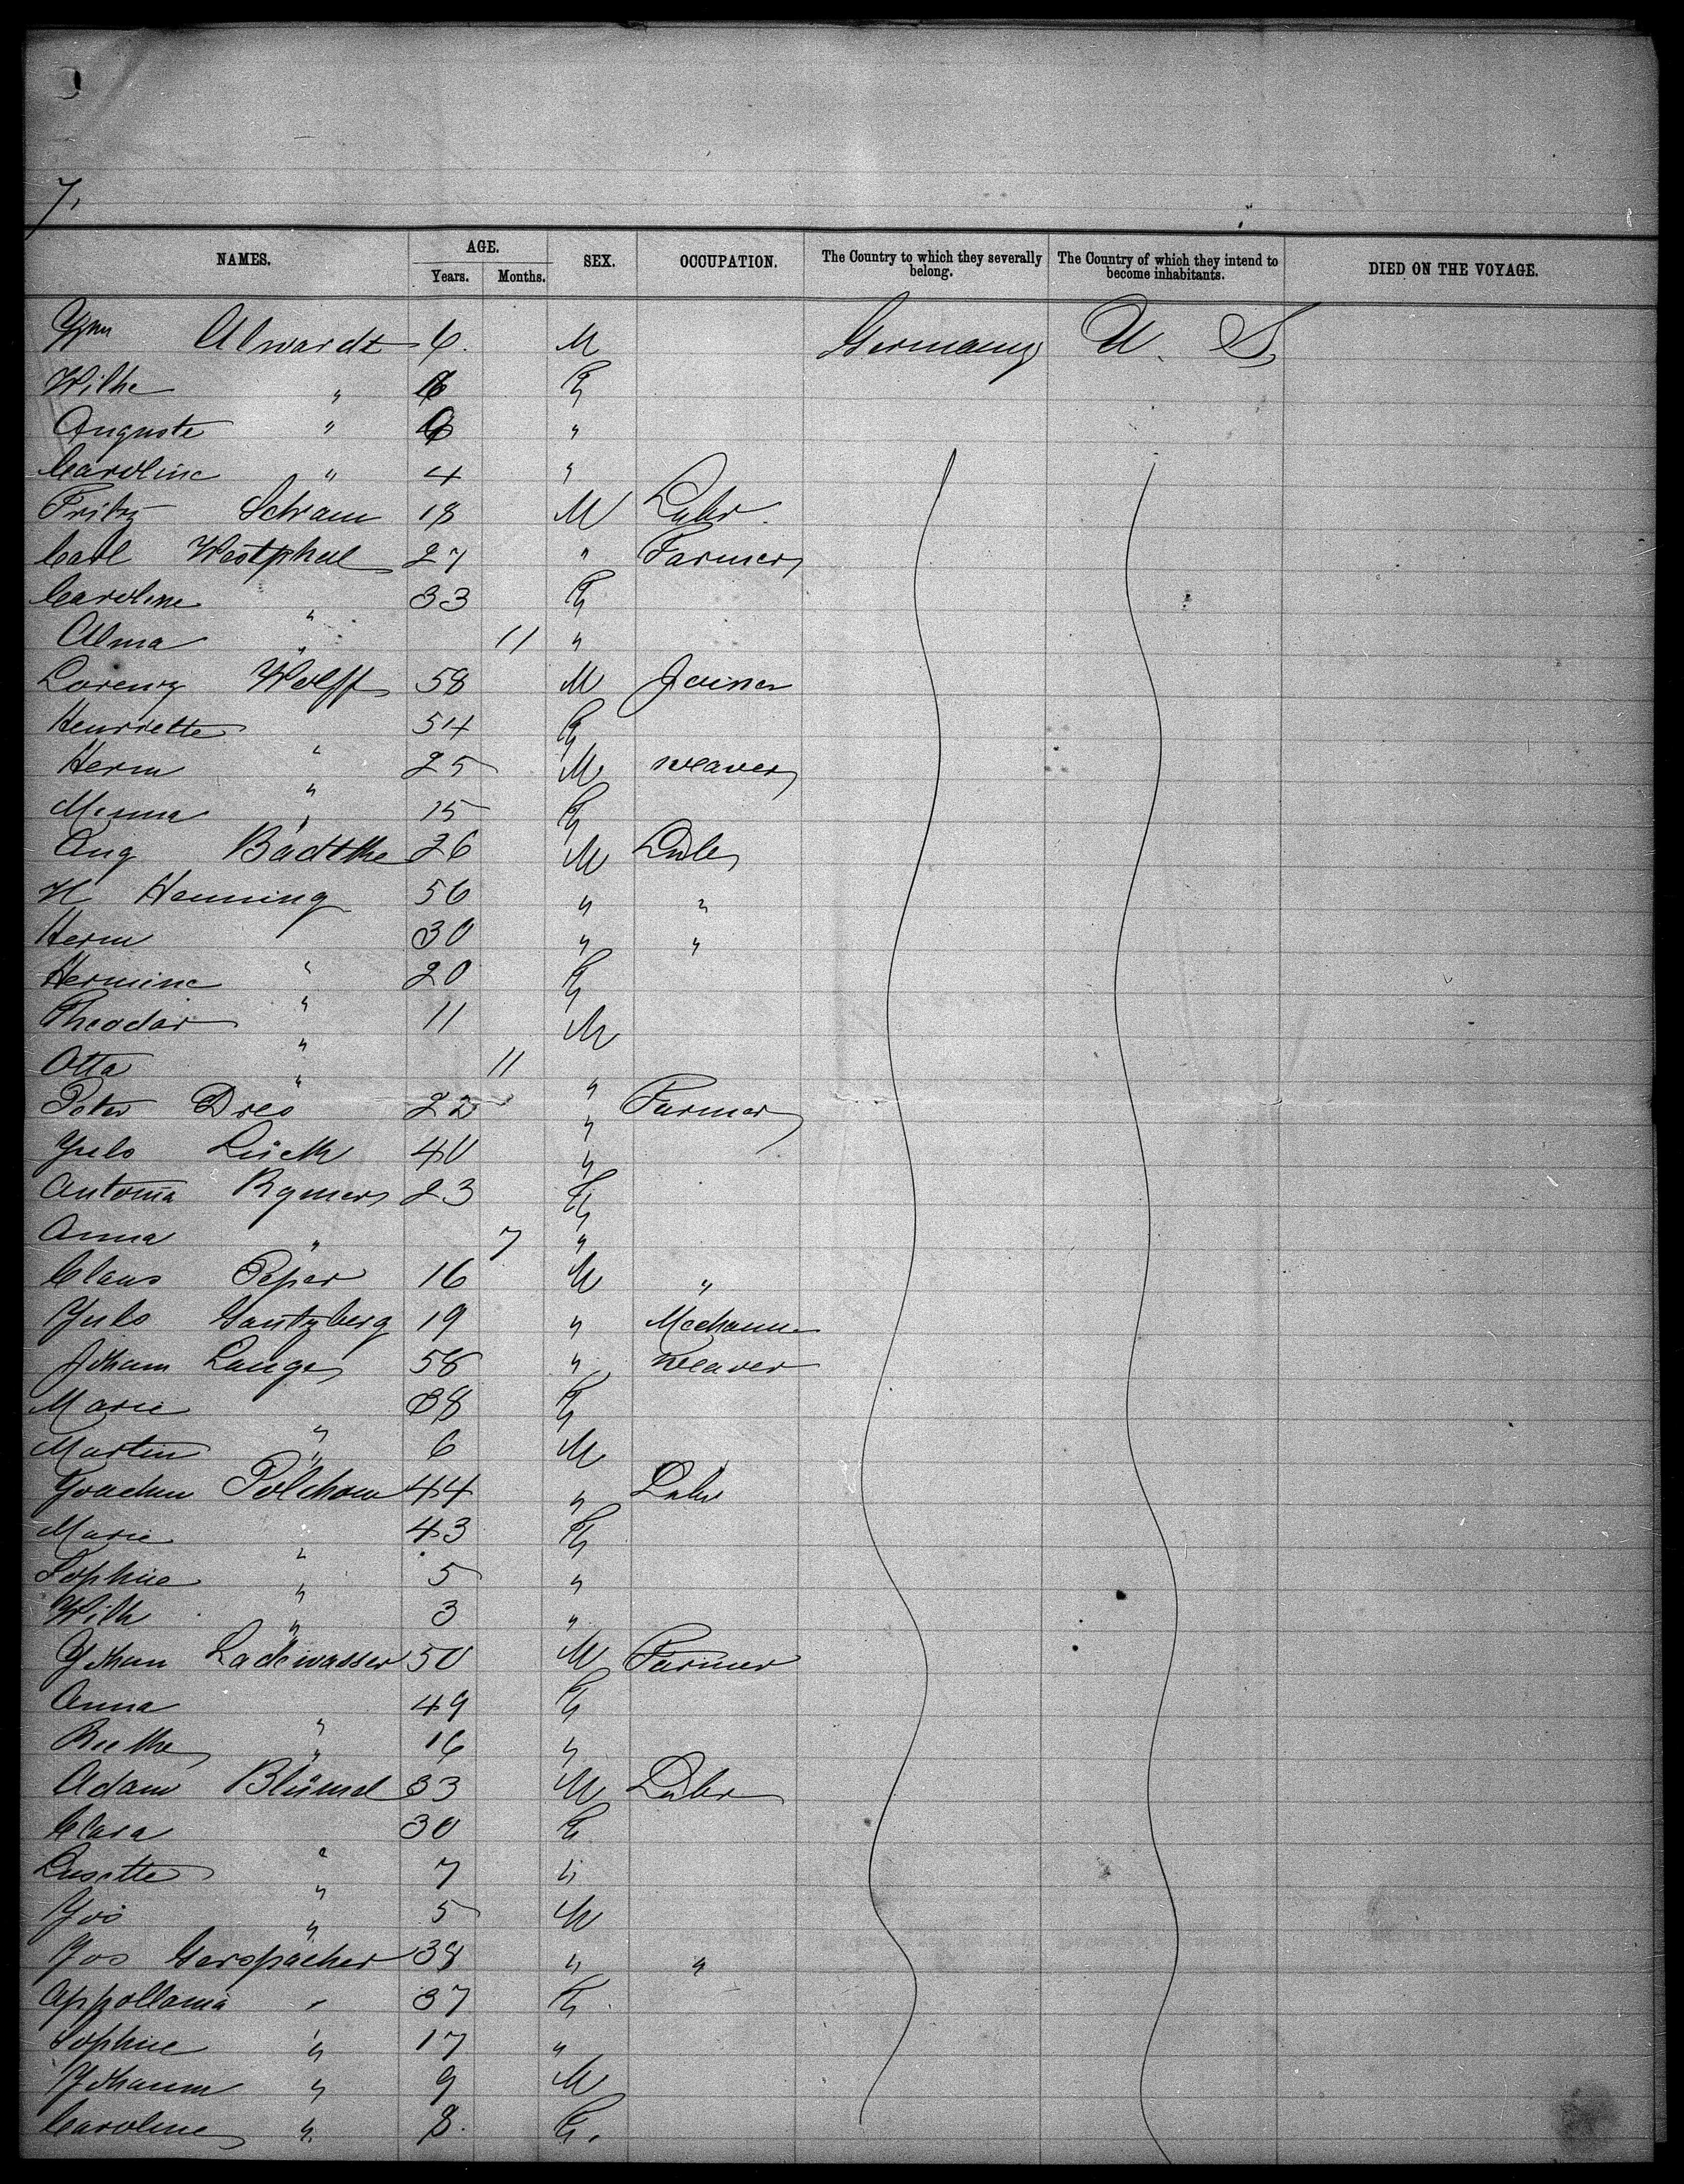 7.
NAMES. AGE. Years. Months. SEX. OCCUPATION. The Country to which they severally belong. The Country of which they intend to become inhabitants. DIED ON THE VOYAGE.
Wm Alwardt 6. M Germany U. S.
Wilhe " F
Auguste " "
Caroline " 4 "
Fritz Schram 18 M Labr.
Carl Westphal 27 " Farmer
Caroline " 33 F
Alma " 11 "
Lorenz Wolff 58 M Joiner
Henriette " 54 F
Herm " 25 M weaver
Minna " 15 F
Aug Badtke 26 M Labr
H Henning 56 " "
Herm " 30 " "
Hermine " 20 F
Theodor " 11 M
Otto " 11 "
Peter Dres 22 " Farmer
Juls Lüeth 40 "
Antonia Rymers 23 F
Anna " 7 "
Claus Peper 16 M "
Juls Gantzberg 19 " Mechanic
Johann Lange 58 " weaver
Marie " 38 F
Martin " 6 M
Joachim Polchow 44 " Labr
Marie " 43 F
Sophie " 5 "
Wilh " 3 "
Johan Ladewasser 50 M Farmer
Anna " 49 F
" 16 "
Adam Blümel 33 M Labr
Clara " 30 F
Lusette " 7 "
Jos " 5 M
Jos Gerspacher 38 " "
Appollonia " 37 F.
Sophie " 17 "
Johann " 9 M
Caroline " 8. F.